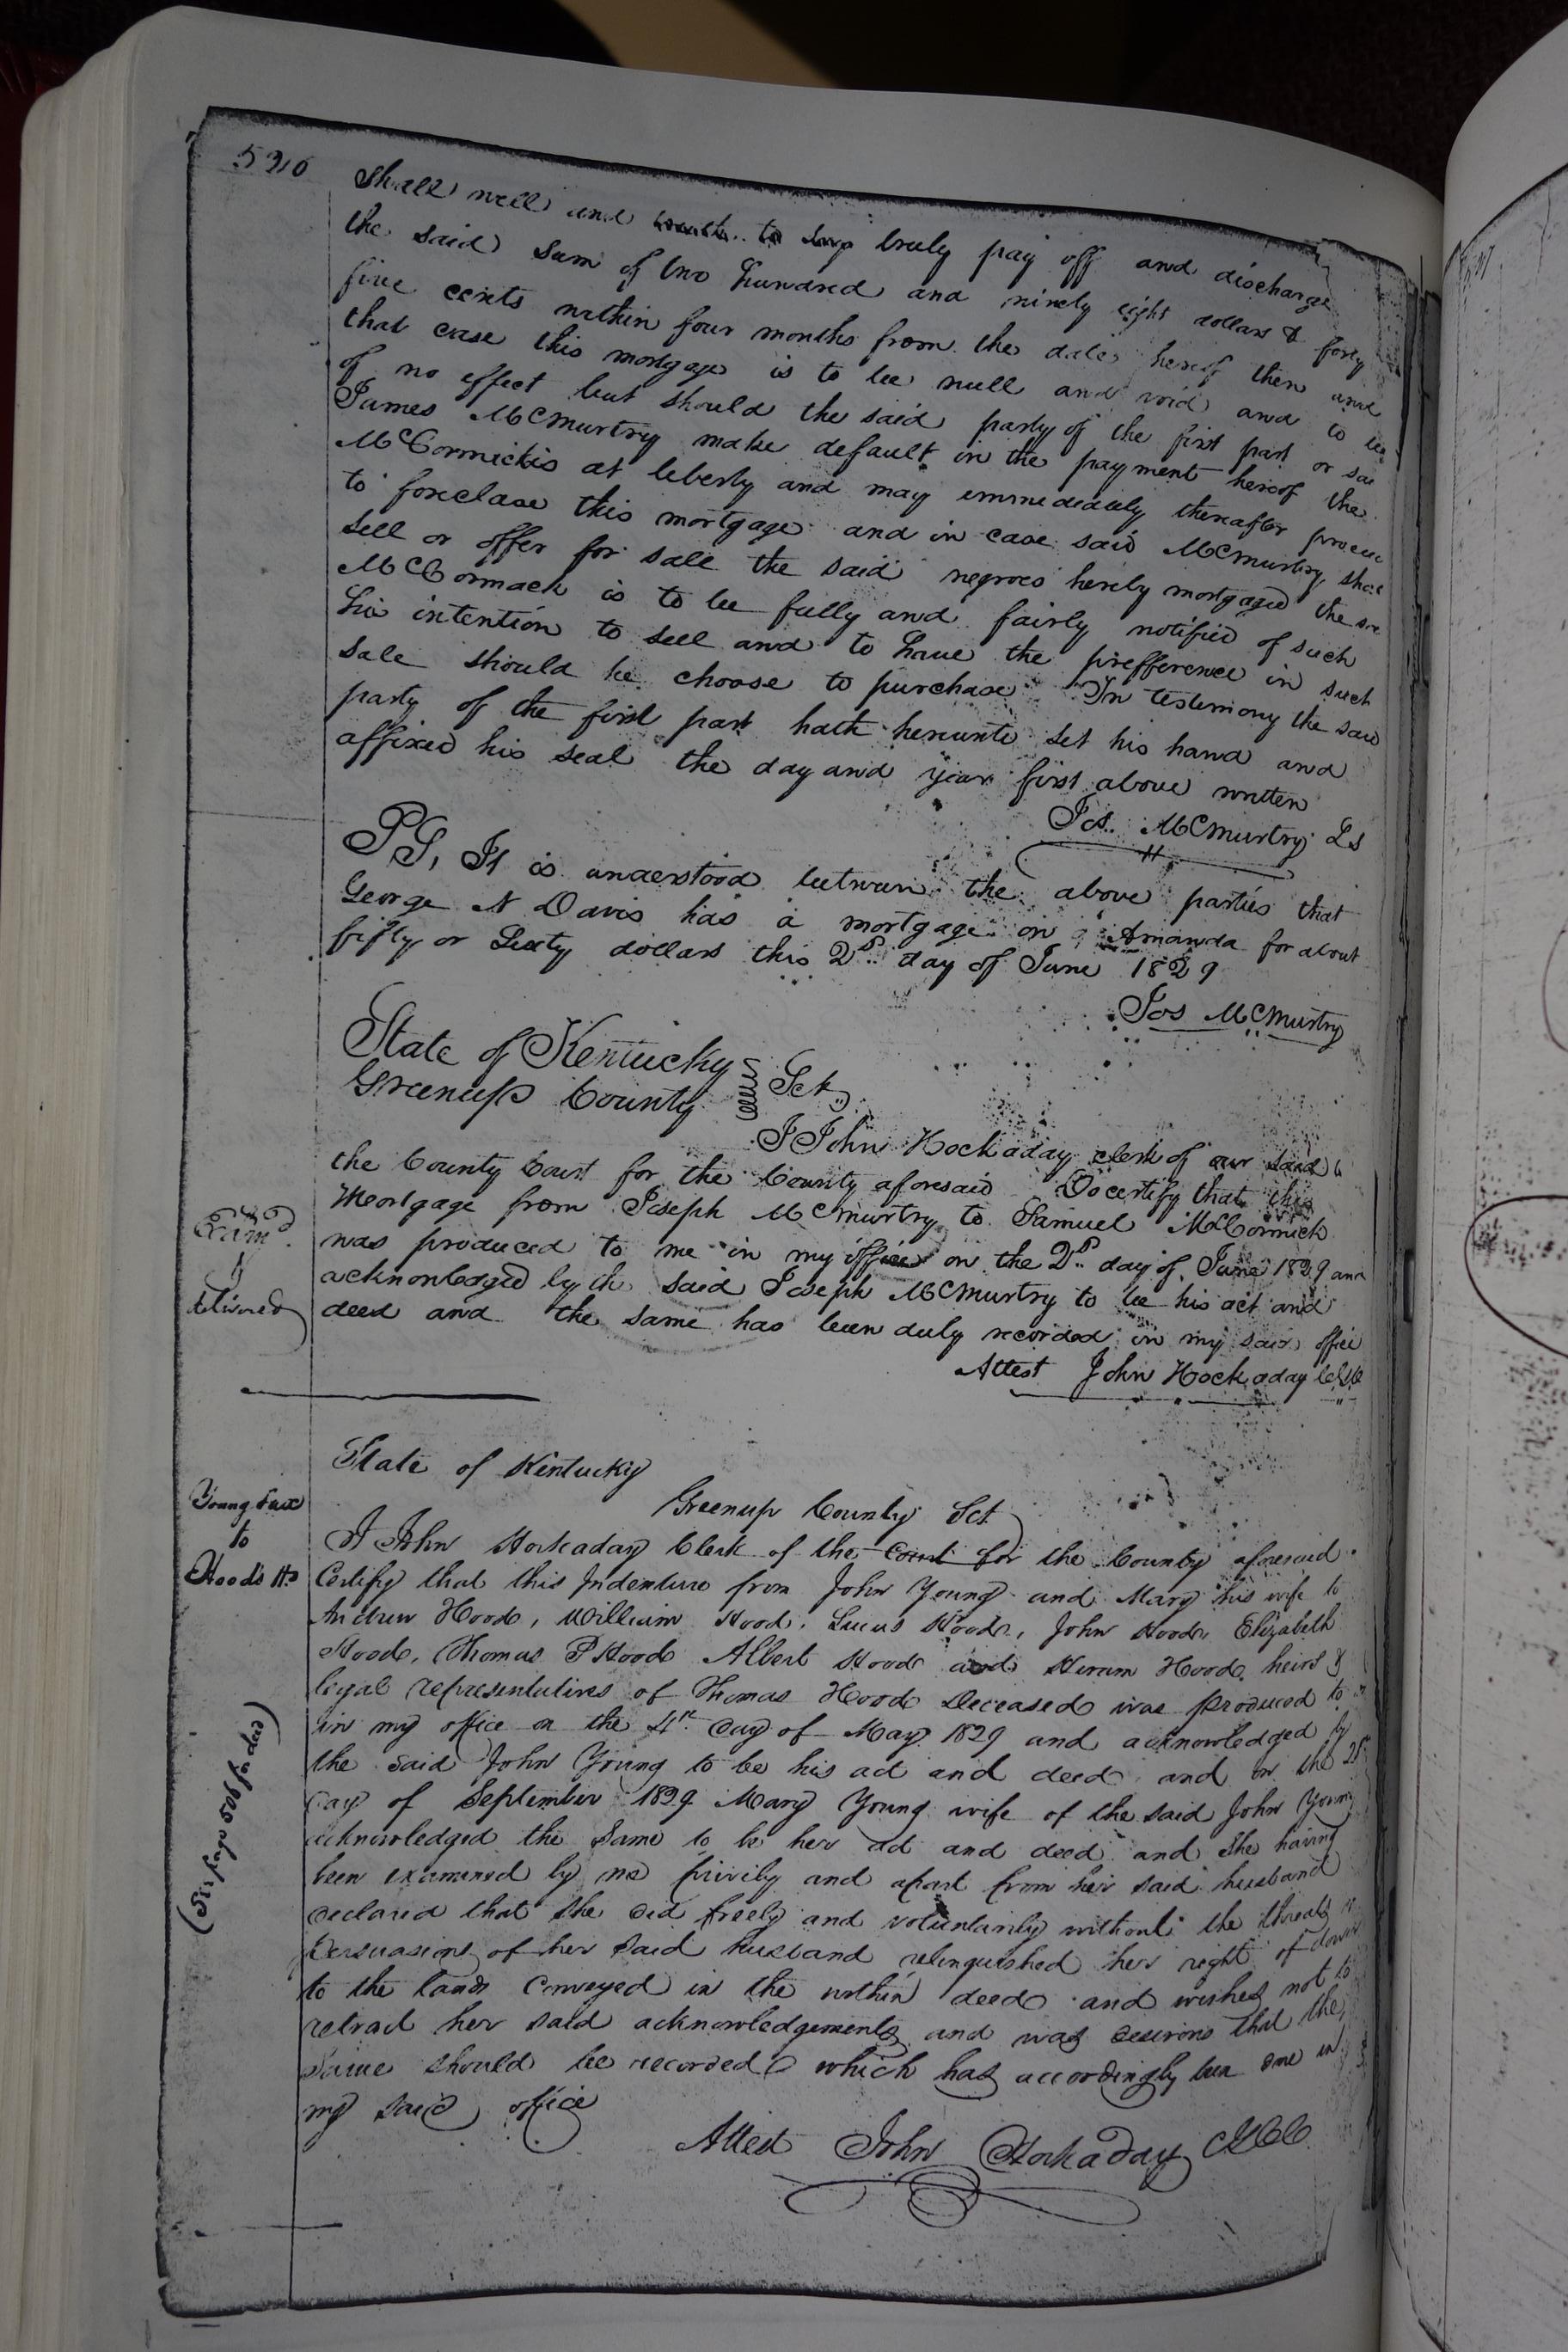 526
shall well and truly pay off and discharge
the said sum of two hundred and ninety eight dollars & forty
five cents within four months from the date hereof then and
that case this mortgage is to be null and void and to be
of no effect but should the said party of the first part or sai
James McMurtry make default in the payment hereof the
McCormick is at liberty and may immediately thereafter procee
to foreclose this mortgage and in case said McMurtry shal
sell or offer for sale the said negroes hereby mortgaged the
McCormack is to be fully and fairly notified of such
his intention to sell and to have the prefference in such
sale should he choose to purchase In testimony the said
party of the first part hath hereunto set his hand and
affixed his seal the day and year first above written
Jos. McMurtry Ls
PS, It is understood between the above parties that
George N Davis has a mortgage on Amanda for about
fifty or Sixty dollars this 2d day of June 1829
Jos McMurtry
State of Kentucky
Greenup County Sct
I John Hockaday clerk of our said
the County Court for the County aforesaid Do certify that this
Mortgage from Joseph McMurtry to Samuel McCormick
was produced to me in my office on the 2d day of June 1829 and
acknowledged by the said Joseph McMurtry to be his act and
deed and the same has been duly recorded in my said office
Attest John Hockaday
Examd
&
delivered
State of Kentucky
Greenup County Sct
Young &ux
to
Hood's Hrs
I John Hockaday Clerk of the Court for the County aforesaid
Certify that this Indenture from John Young and Mary his wife to
Andrew Hood, William Hood, Lucus Hood, John Hood, Elizabeth
Hood, Thomas P Hood Albert Hood and Hiram Hood heirs &
legal representatives of Thomas Hood Deceased was produced to
in my office on the 4th day of May 1829 and acknowledged by
the said John Young to be his act and deed and on the 28th
day of September 1829 Mary Young wife of the said John Young
acknowledged the same to be her act and deed and she having
been examined by me privily and apart from her said husband
declared that she did freely and voluntarily without the threats or
Persuasions of her said husband relinquished her right of dower
to the lands conveyed in the within deed and wishes not to
retract her said acknowledgements and was desirous that the
same should be recorded which has accordingly been done in
my said office
Attest John Hockaday
(See page 508 for deed)